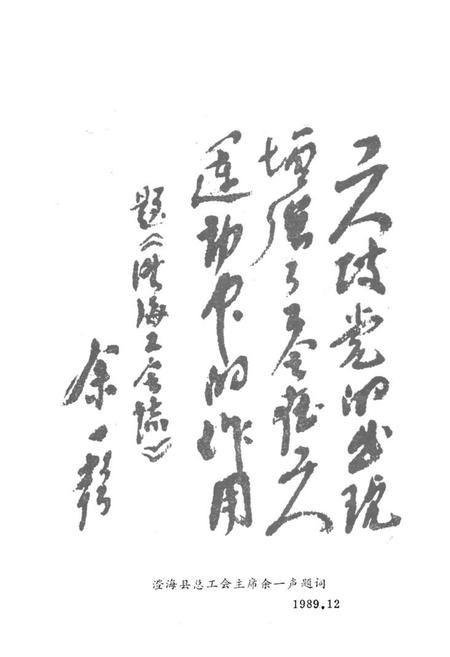 工人政党的出现
增强了工会在工人
運动中的作用
题《澄海工会誌》
余一声
澄海县总工会主席余一声题词
1989.12